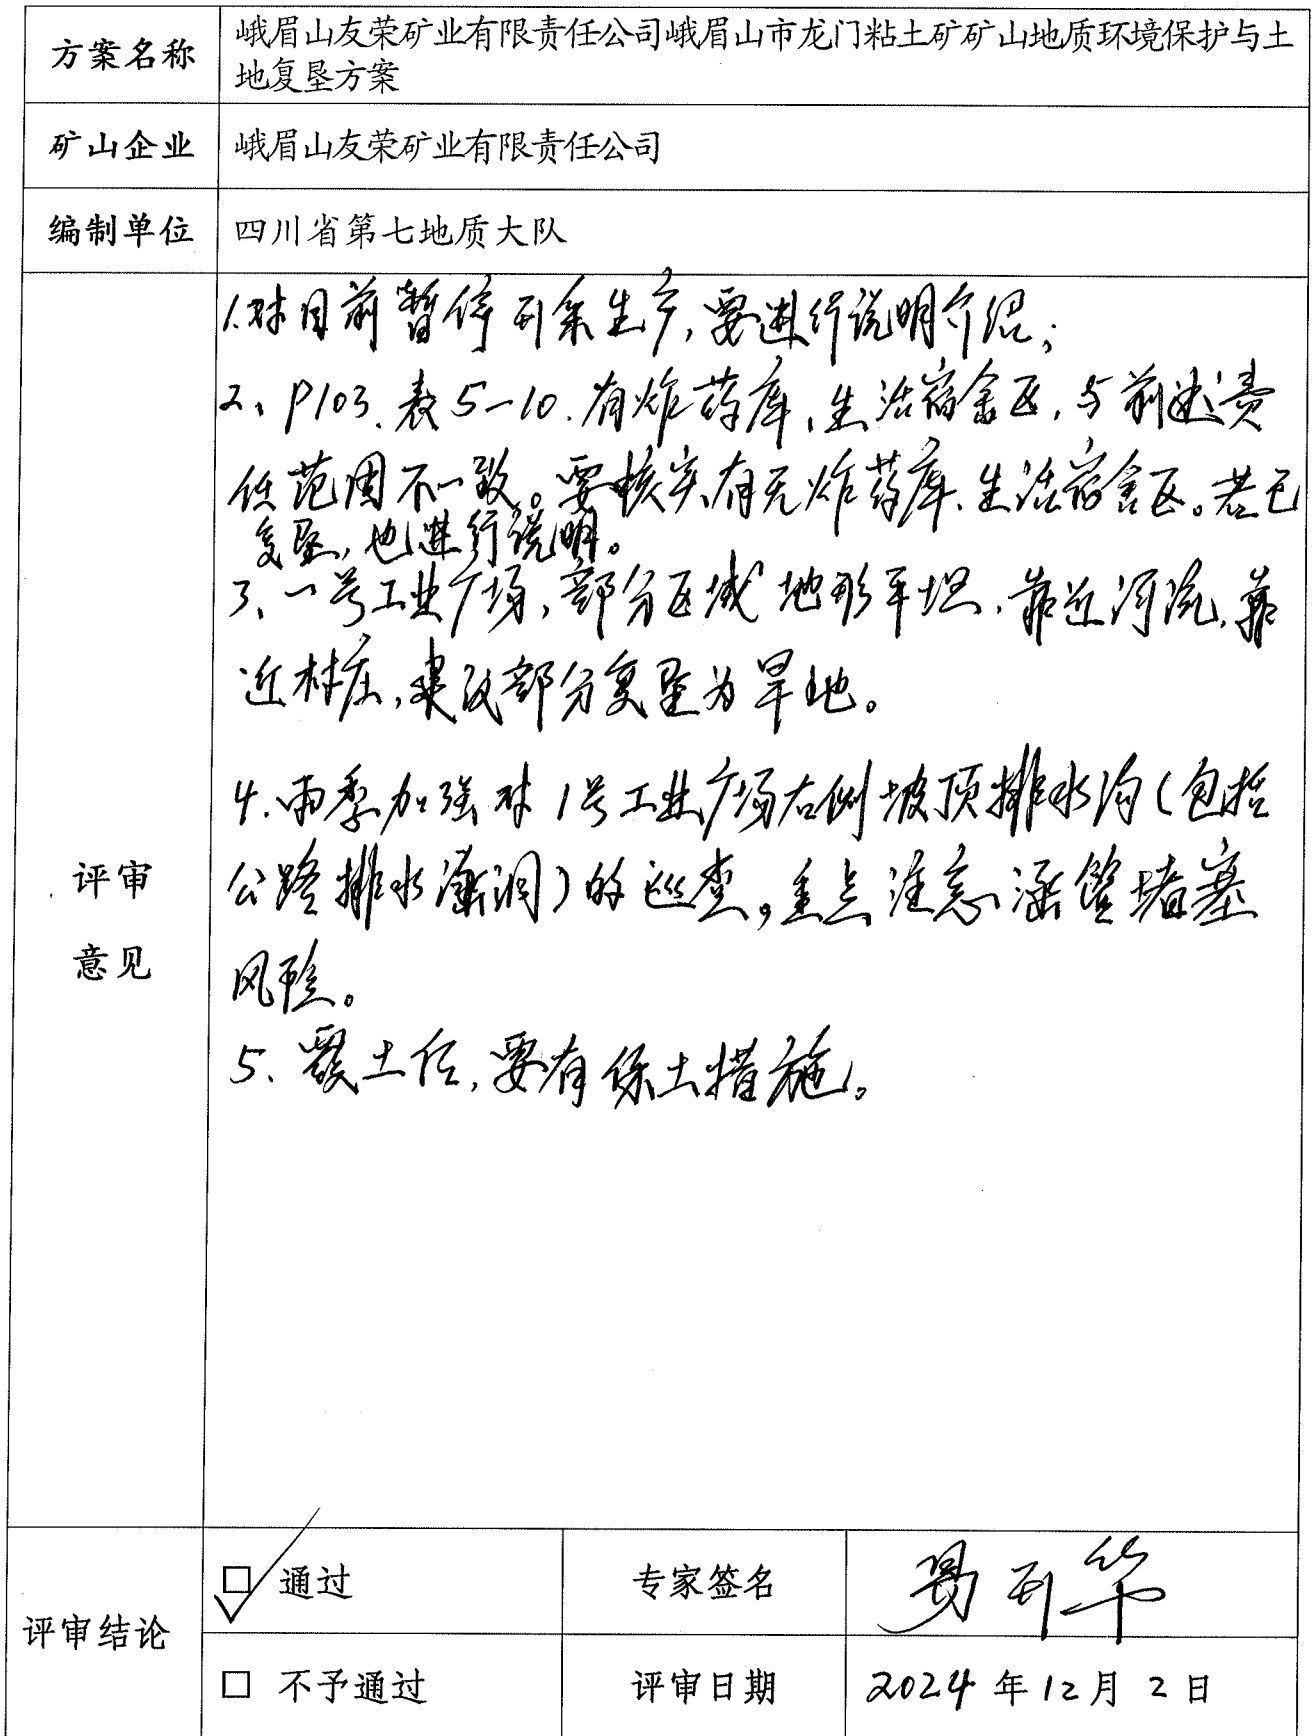 方案名称
峨眉山友荣矿业有限责任公司峨眉山市龙门粘土矿矿山地质环境保护与土
地复垦方案
矿山企业
峨眉山友荣矿业有限责任公司
编制单位
四川省第七地质大队
评审
意见
1.对目前暂停开采生产,要进行说明介绍;
2、P103.表5-10.有炸药库、生活宿舍区,与前述责
任范围不一致。要核实有无炸药库、生活宿舍区。若已
复垦,也进行说明。
3、一号工业广场,部分区域地形平坦、靠近河流,靠
近村庄,建议部分复垦为旱地。
4.雨季加强对1号工业广场右侧坡顶排水沟(包括
公路排水涵洞)的巡查。重点注意涵管堵塞
风险。
5、覆土后,要有保土措施。
评审结论
□ 通过
专家签名
易开华
□ 不予通过
评审日期
2024年12月2日